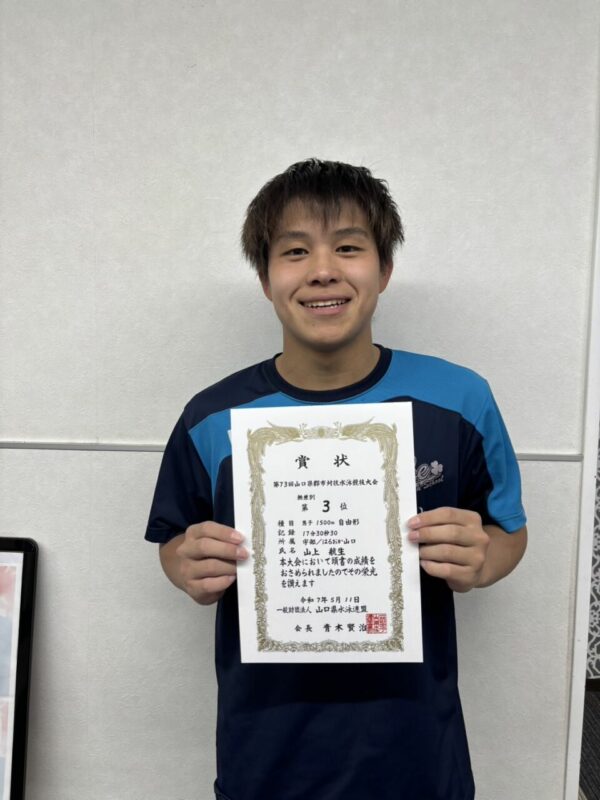 賞状
第73回山口県郡市対抗水泳競技大会
無差別
第 3 位
種目 男子 1500m 自由形
記録 17分30秒30
所属 宇部/はらおか山口
氏名 山上 航生
本大会において頭書の成績を
おさめられましたのでその栄光
を讃えます
令和7年5月11日
一般財団法人 山口県水泳連盟
会長 青木賢治